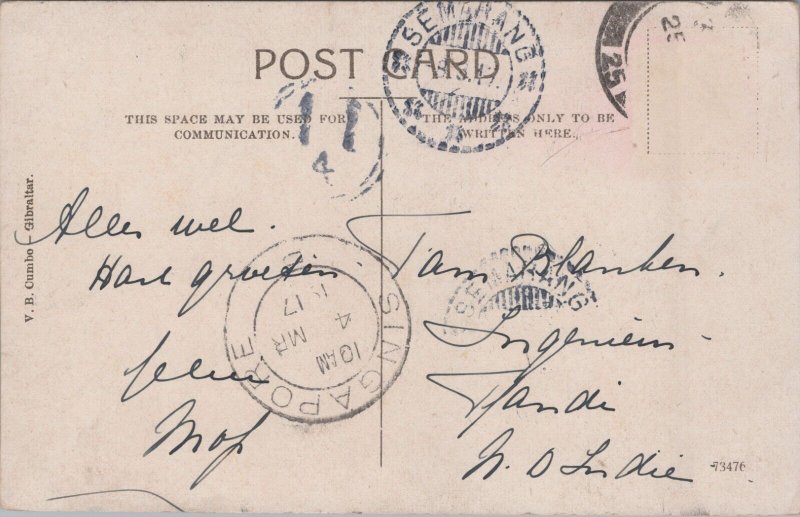 POST CARD
THIS SPACE MAY BE USED FOR
COMMUNICATION.
THE ADDRESS ONLY TO BE
WRITTEN HERE.
SEMARANG
25
25
4
V. B. Cumbo - Gibraltar.
Alles wel.
Hart groeten
SINGAPORE
10 AM
MR
4
1917
Tam Blanken.
SEMARANG
Ingenieur
Tandi
N. O Indie
73476